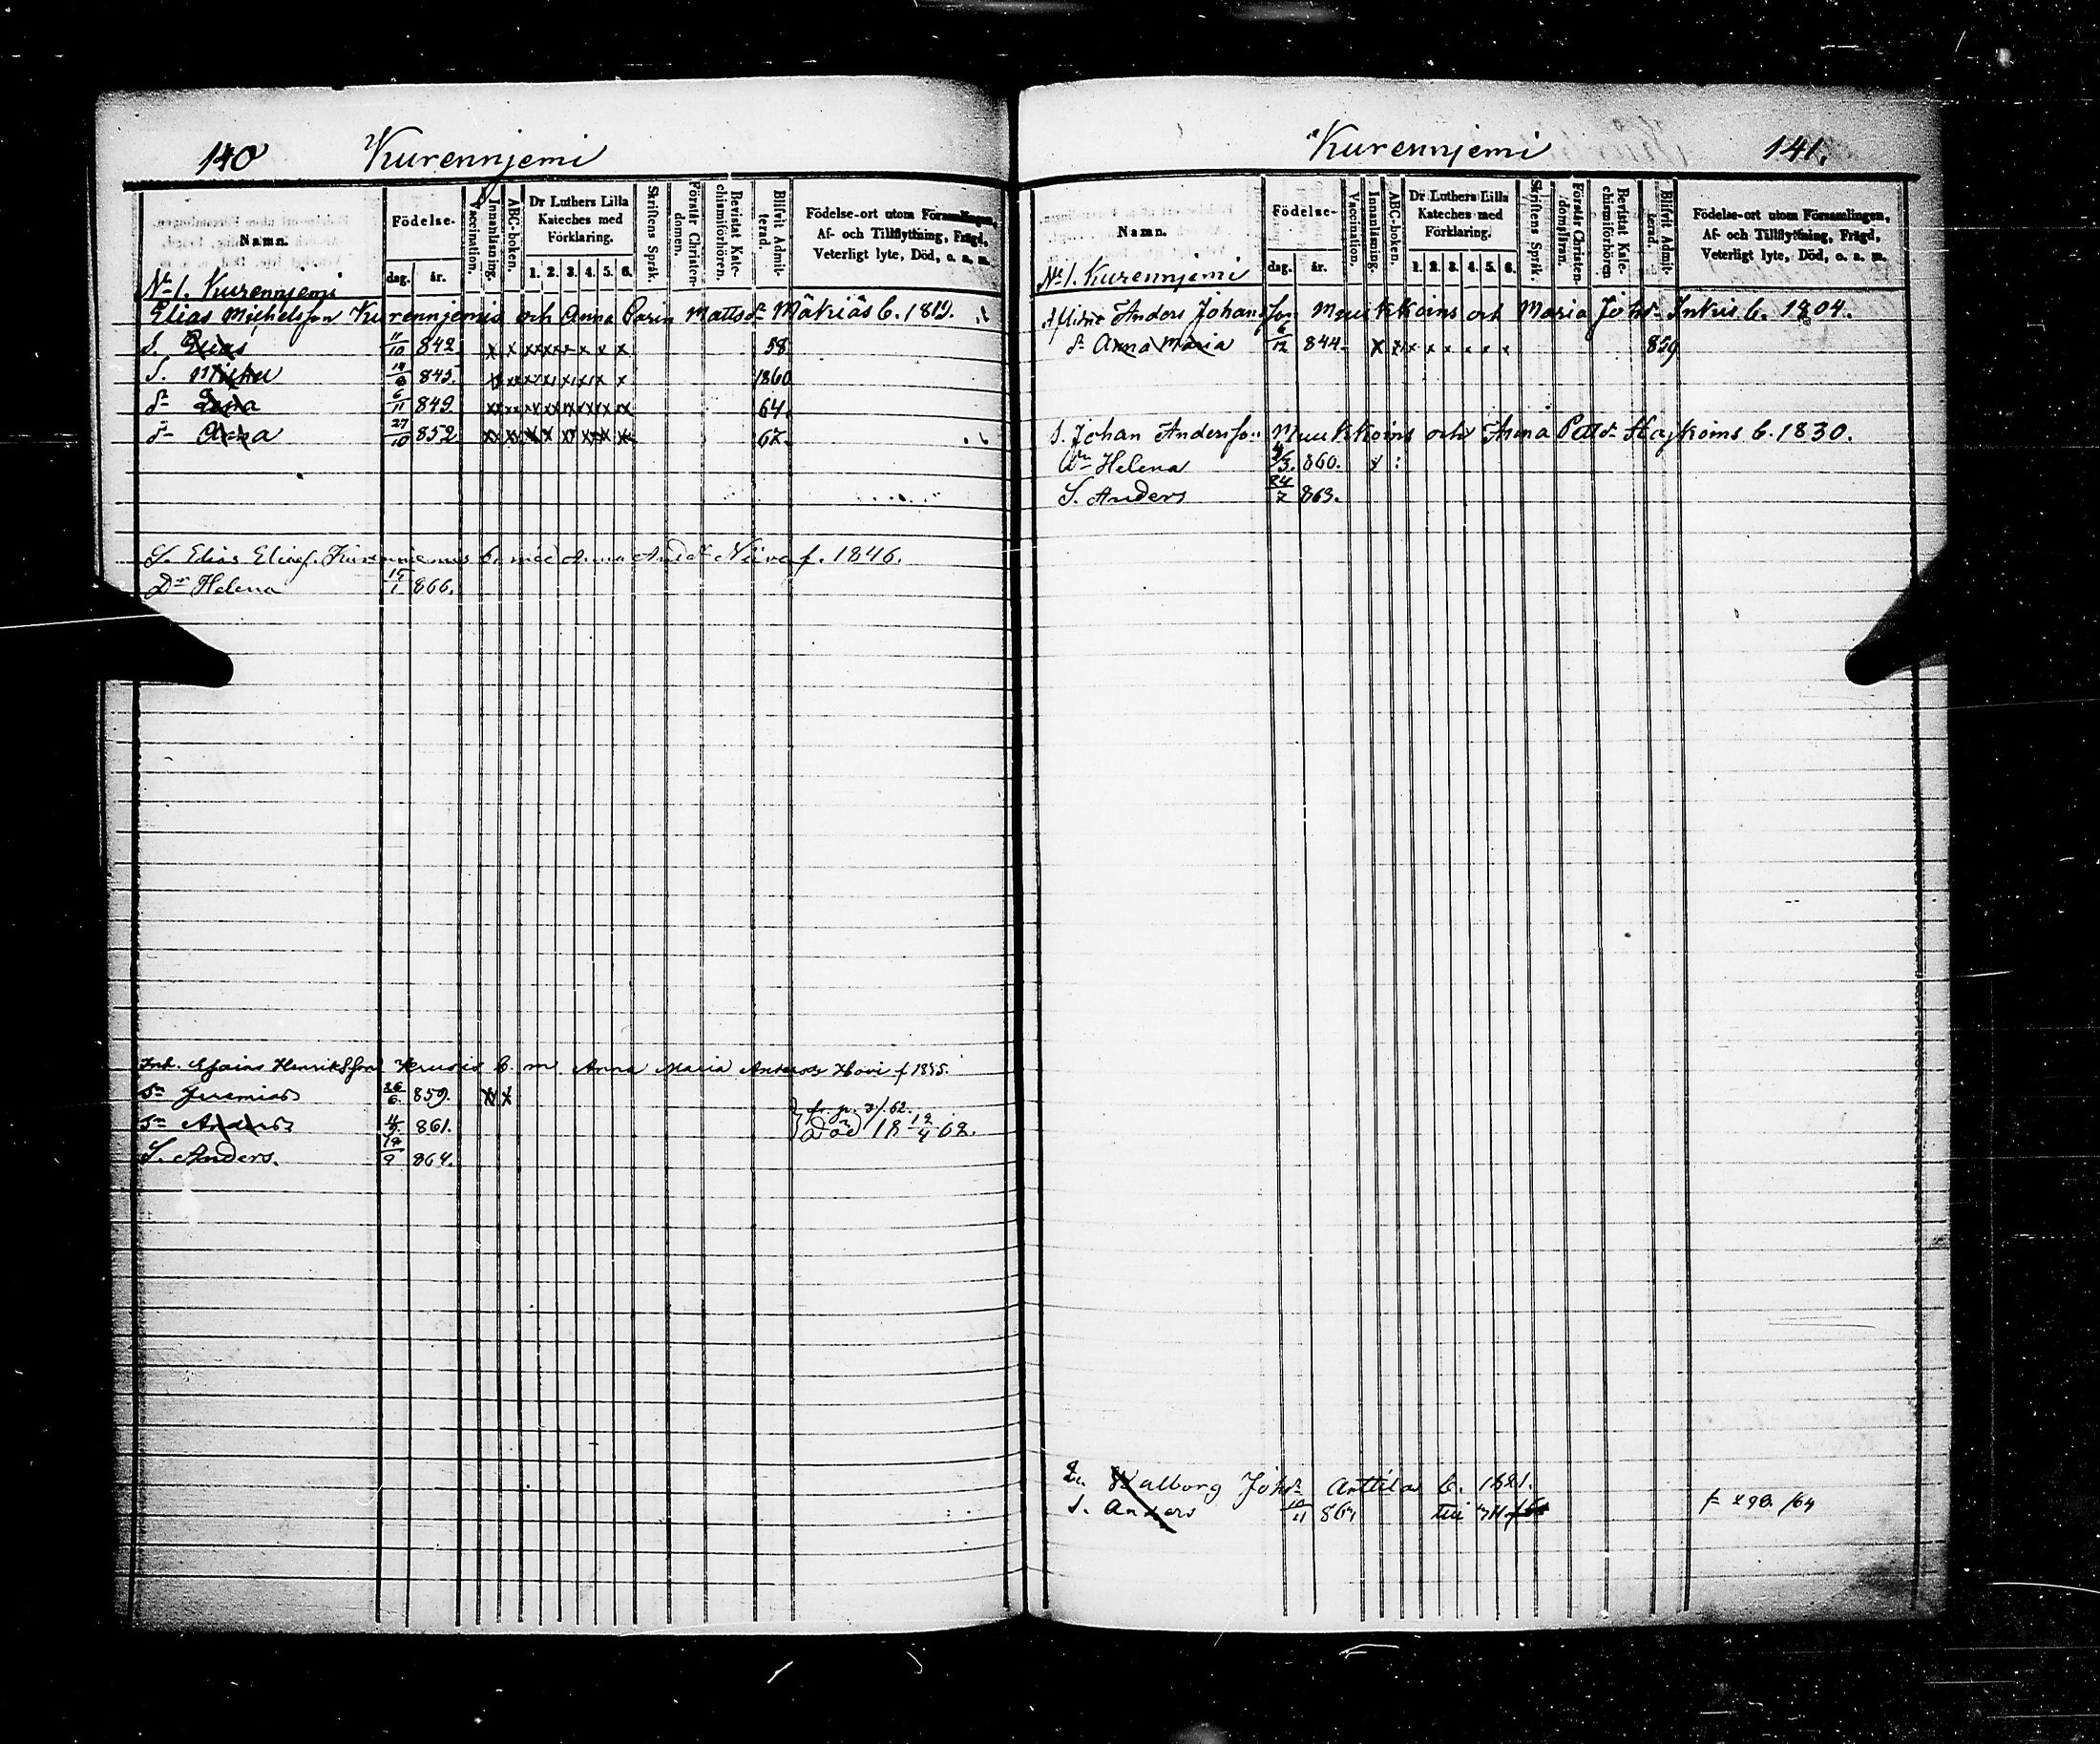 140 Kurennjemi
Namn.
Födelse-
dag. år.
Vaccination.
Innanläsning.
ABC-boken.
Dr Luthers Lilla Kateches med Förklaring.
1. 2. 3. 4. 5. 6.
Skriftens Språk.
Förstår Christendomen.
Bevistat Katechismiförhören.
Blifvit Admitterad.
Födelse-ort utom Församlingen,
Af- och Tillflyttning, Frägd,
Veterligt lyte, Död, o. s. m.
No 1. Kurennjemi
Elias Michelsson Kurennjemis och Anna Carin Mattsdr Mäkiäs b. 1819.
S. Elias 11/10 842 x x x x x x x x 58
S. Michel 845. x x x x x x x x 1860
dr Lena 6/11 849 x x x x x x x x 64.
dr Anna 27/10 852 x x x x x x x x 67.
S. Elias Eliasf. Kurenniemis b. med Anna Andrdr f. 1846.
Dr Helena 15/1 866.
Inh. Esaias Henriksson b. m. Anna Maria Andersdr Hovi f 1835.
Sn Jeremias 26/6 859. x x
Sn Anders 861. död 18 12/4 62.
S. Anders. 864.
Kurennjemi 141.
Namn.
Födelse-
dag. år.
Vaccination.
Innanläsning.
ABC-boken.
Dr Luthers Lilla Kateches med Förklaring.
1. 2. 3. 4. 5. 6.
Skriftens Språk.
Förstår Christendomsläran.
Bevistat Katechismiförhören
Blifvit Admitterad.
Födelse-ort utom Församlingen,
Af- och Tillflyttning, Frägd,
Veterligt lyte, Död, o. s. m.
No 1. Kurennjemi
Anders Johansson Muukkoins och Maria Johdr Inkis b. 1804.
dr Anna Maria 6/12 844. x x x x x x x x 859
S. Johan Andersson Muukkoins och Anna Pettdr b. 1830.
Dr Helena 860. x
S. Anders 24/7 863.
Walborg Johdr Anttila b. 1821.
S. Anders